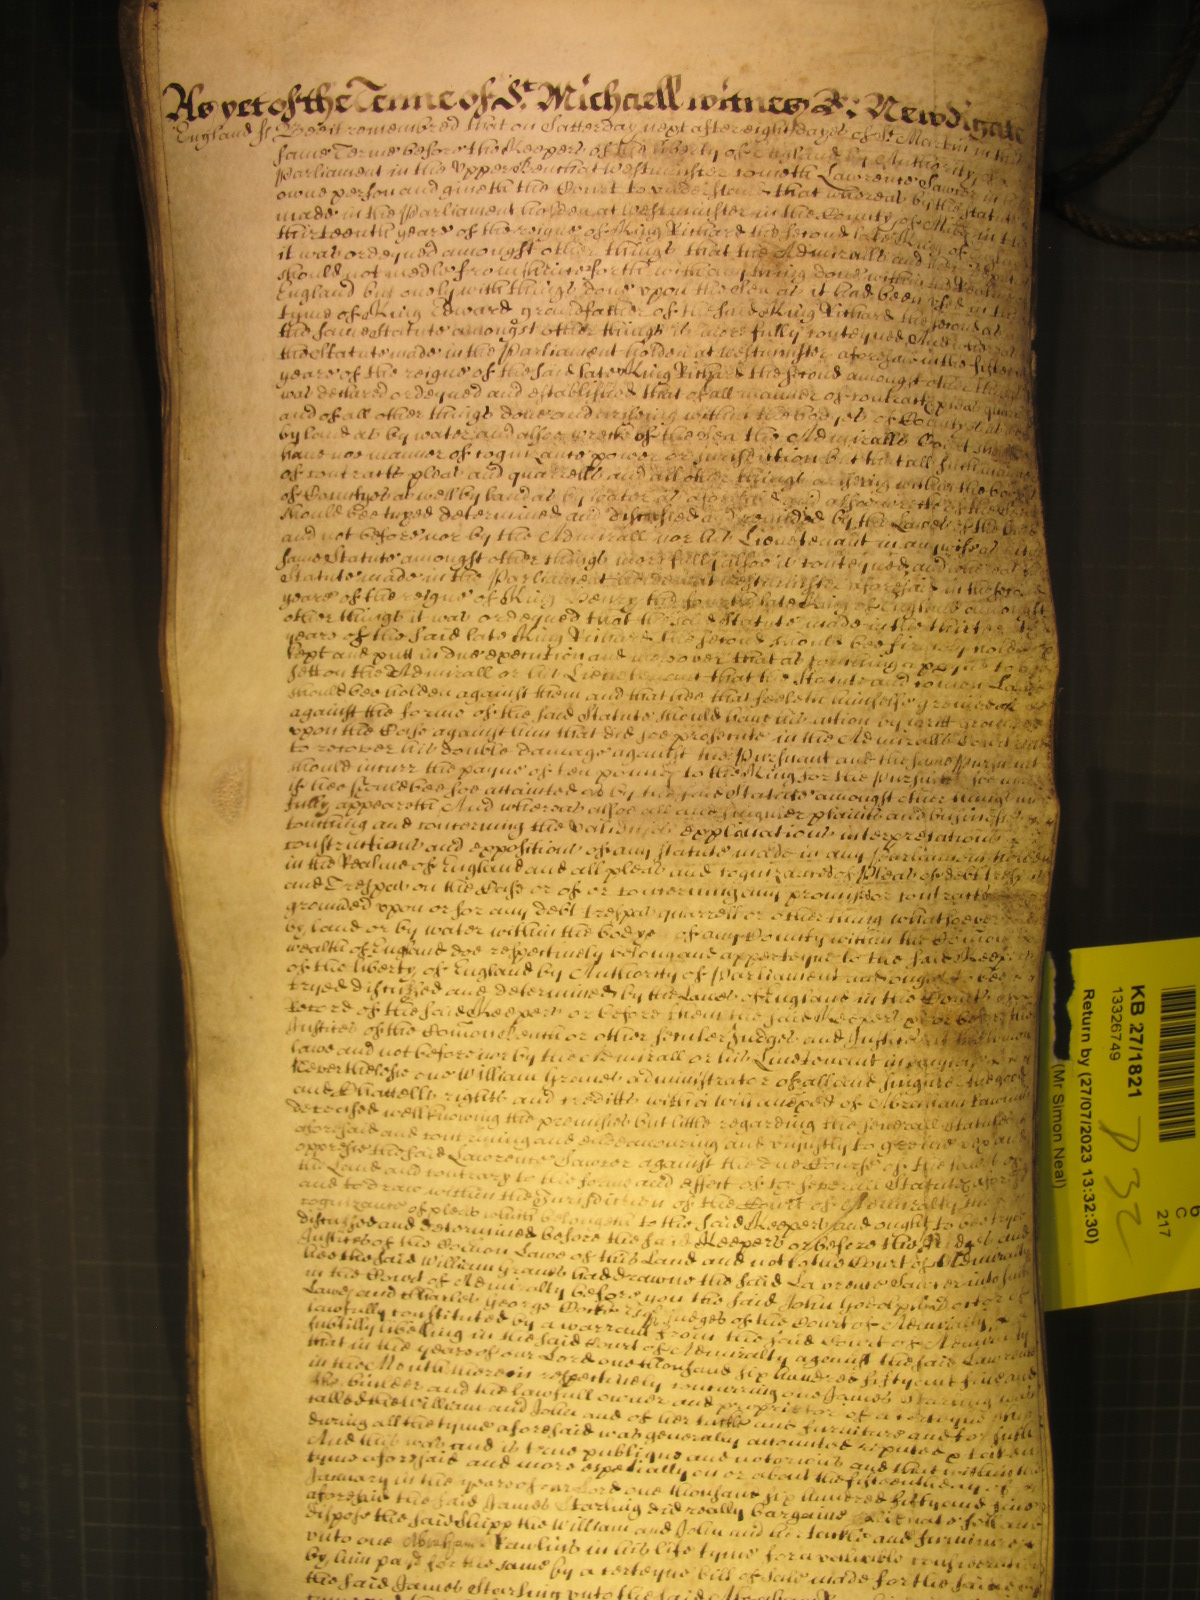 As yet of the Terme of St. Michaell witnes R: Newdigate
England ss Be it remembred that on Satterday next after eight dayes of St. Martin in this
same Terme before the Keepers of the liberty of England by Authority of
Parliament in the upper Bench at Westminster cometh Lawrence Sawier in his
owne person and giveth the Court to understand that whereas by the Statute
made in the Parliament holden at Westminster in the County of Midd in the
thirteenth yeare of the reigne of King Richard the second late King of England
it was ordeyned amongst other things that the Admiralls and
should not medle from thenceforth with any thing done within the Realme of
England but onely with things done upon the Sea as it had been used in the
tyme of King Edward grandfather of the said King Richard the second as
the same Statute amongst other things is more fully conteyned And whereas
the Statute made in the Parliament holden at Westminster aforesaid in the fifteenth
yeare of the reigne of the said late King Richard the second amongst other things
was declared ordeyned and established that of all manner of contracts pleas quarrells
and of all other things done and arrising within the bodyes of Countyes as
by land as by water and alsoe wrecke of the sea the Admiralls Court should
have noe manner of cognizance power or jurisdiction but that all such manner
of contracts pleas and quarrells and all other things arriseing within the bodyes
of Countyes as well by land as by water as aforesaid and alsoe wrecke of the Sea
should bee tryed determined and discussed and remedied by the Lawes of the Land
and not before nor by the Admirall nor his Lievetenant in any wise as in the
same Statute amongst other things more fully alsoe is conteyned and whereas
Statute made in the Parliament holden at Westminster aforesaid in the second
yeare of the reigne of King Henry the fourth late King of England amongst
other things it was ordeyned that the said Statute made in the thirteenth
yeare of the said late King Richard the second should bee firmely holden &
kept and putt in due execution and moreover that as touching a payne to bee
sett on the Admirall or his Lievetenant that the Statute and comon Lawe
should bee holden against them and that hee that feeleth himselfe greived
against the forme of the said Statute should have his action by writt grounded
upon the Case against him that did soe prosecute in the Admiralls Court and
to recover his double damage against the Pursuant and the same Pursuant
should incurr the payne of ten pounds to the King for the Pursuite soe made
if hee should bee soe attainted as by the said Statute amongst other things more
fully appeareth And whereas alsoe all and singuler plaints and busines
touching and concerning the validities explinations interpretations
constructions and expositions of any Statute made in any Parliament holden
in the Realme of England and all pleas and cognizances of Pleas of debt tresp
and Trespas on the Case or of or concerning any promise or contracts
grounded upon or for any debt trespas quarrell or other thing whatsoever
by land or by water within the bodye of any County within the Comon
wealth of England doe respectively belong and apperteyne to the said Keepers
of the liberty of England by Authority of Parliament and ought to bee
tryed discussed and determined by the Lawes of England in the Courts
record of the said Keepers or before them the said Keepers or before the
Justices of the Comon Bench or other secular Judges and Justices at the Comon
lawe and not before nor by the Admirall or his Lievetenant in any
Neverthelesse one William Graves administrator of all and singuler the goods
and Chattells rights and creditts with a will anexed of Abraham Rawlins
deceased well knowing the premises but little regarding the severall Statutes
aforesaid and contriving and endeavouring and unjustly to greive vex and
oppresse the said Lawrence Sawier against the due Course of the lawes of
the Land and contrary to the forme and effect of the severall Statutes aforesaid
and to draw within the Jurisdiction of the Court of Admiralty the
cognizance of pleas which belongeth to the said Keepers and ought to bee tryed
discussed and determined before the said Keepers or before the Judges and
Justices of the Comon Lawe of this Land and not to the Court of Admiralty
hee the said William Graves had drawne the said Lawrence Sawier into suit
in the Court of Admiralty before you the said John Godolphin doctor of
Lawes and Charles George Cocke Judges of the Court of Admiralty
lawfully constituted by a warrant from the said Court of Admiralty
subtilly libelling in the said Court of Admiralty against the said Lawrence
that in the yeares of our Lord one thousand six hundred fifty and five and
in the Moneths therein respectively concurring one James Starling was
the builder and the lawfull owner and proprietor of a certeyne shipp
called the William and John and of her tackle and furniture and for such
dureing all the tyme aforesaid was generally accounted reputed & taken
And this was and is true publique and notorious and that within the
tyme aforesaid and more especially on or about the fifteenth day of
January in the yeare of our Lord one thousand six hundred fifty and five
aforesaid the said James Starling did really bargaine alienate sell and
dispose the said Shipp the William and John and her tackle and furniture
unto one Abraham Rawlins in his life tyme for a valuable consideration
by him payd for the same by a certeyne bill of Sale made for the same by
the said James Starling unto the said Abraham
KB 27/1821
13326749
Return by (27/07/2023 13:32:30)
(Mr Simon Neal)
C
217
P 32